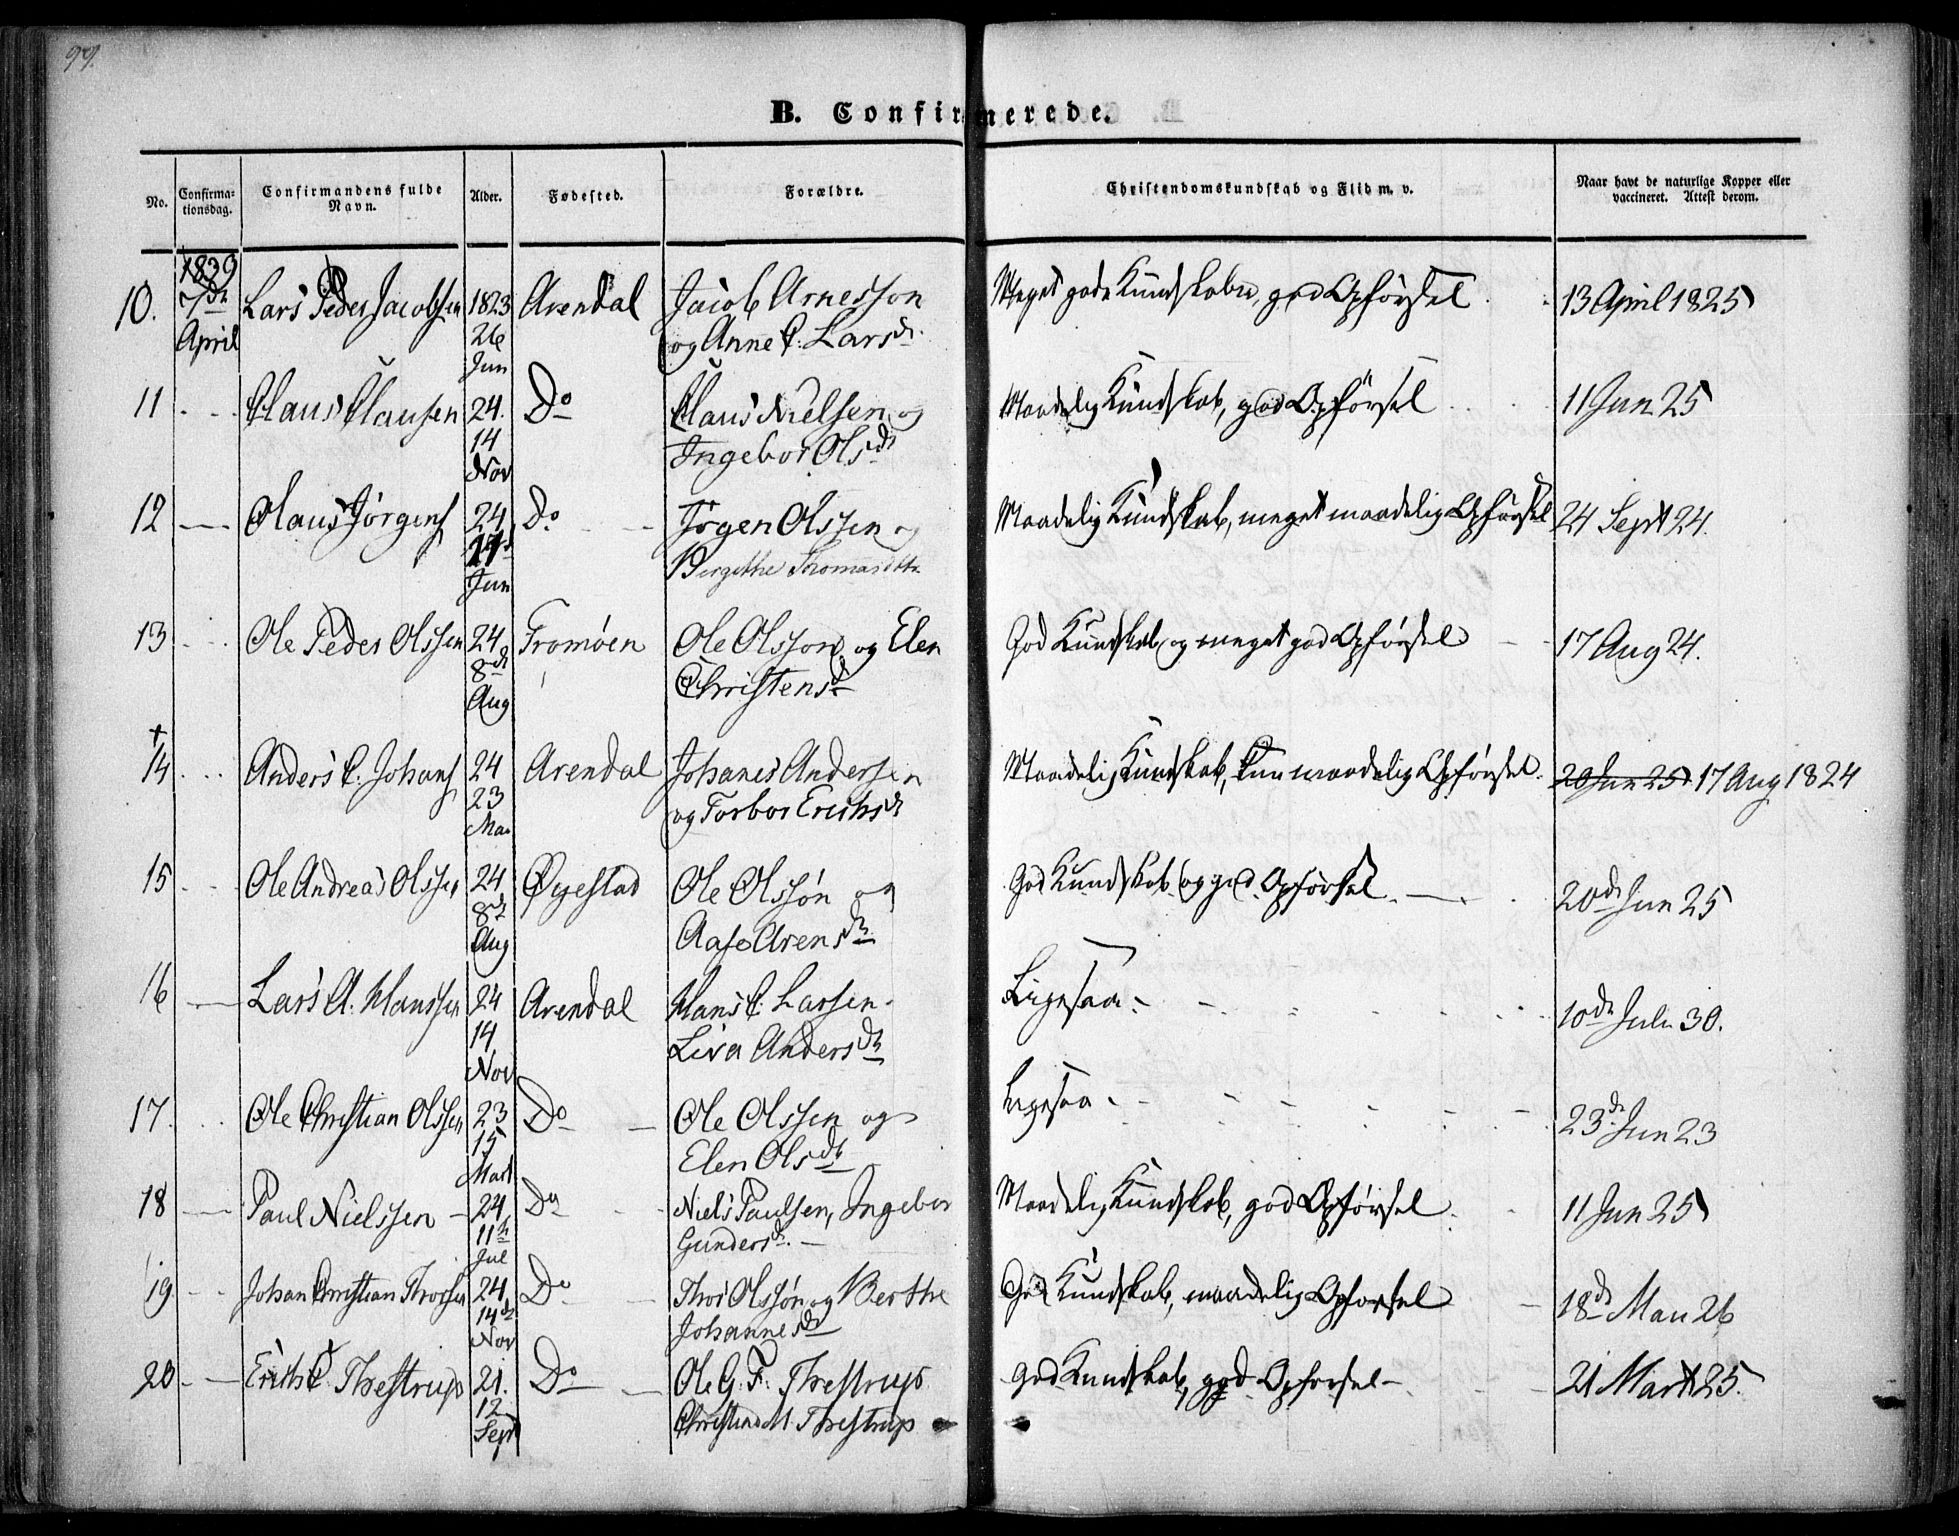 99.
B. Confirmerede.
No. Confirma-tionsdag. Confirmandens fulde Navn. Alder. Fødested. Forældre. Christendomskundskab og Flid m. v. Naar havt de naturlige Kopper eller vaccineret. Attest derom.
1839
10. 7de Lars Peder Jacobsen 1823 Arendal Jacob Arnesson Meget gode Kundskaber, god Opførsel 13 April 1825
April 26 og Anne C. Larsdr
Jun
11 Claus Clausen 24. Do Claus Nielsen og Maadelig Kundskab, god Opførsel 11 Jun 25
14 Ingebor Olsdr
Nov
12 Olaus Jørgens 24 Do Jørgen Olssen og Maadelig Kundskab, meget maadelig Opførsel 24 Sept 24.
Birgithe Thomasdtr.
Jun
13 Ole Peder Olssen 24 Tromøen Ole Olsson og Elen God Kundskab og meget god Opførsel 17 Aug 24.
8de Christensd
Aug
+
14 Anders C. Johans 24 Arendal Johanes Andersen Maadelig Kundskab, kun maadelig Opførsel. 20 Jun 25. 17 Aug 1824
23 og Torbor Erichsdr
Mai
15 Ole Andreas Olssen 24 Øyestad Ole Olssøn og God Kundskab og god Opførsel. 20de Jun 25
8de Aase Arensdr
Aug
16 Lars A. Hanssen 24 Arendal Hans C. Larsen. Ligesaa 10de Juli 30.
14 Liva Andersdr
Nov
17. Ole Christian Olssen 23 Do Ole Olssen og Ligesaa 23de Jun 23
15 Elen Olsdr
Mart
18 Paul Nielssen 24 Do Niels Paulsen, Ingebor Maadelig Kundskab, god Opførsel 11 Jun 25
11te Gundersd.
Jul
19 Johan Christian Thorsen 24 Do Thor Olssøn og Berthe God Kundskab, maadelig Opførsel 18de Mai 26
14de Johannesdr
Nov
20 Erich C. Threstrup 21. Do Ole G. F. Threstrup God Kundskab, god Opførsel 21 Mart 25.
12 Christina M Threstrup
Sept